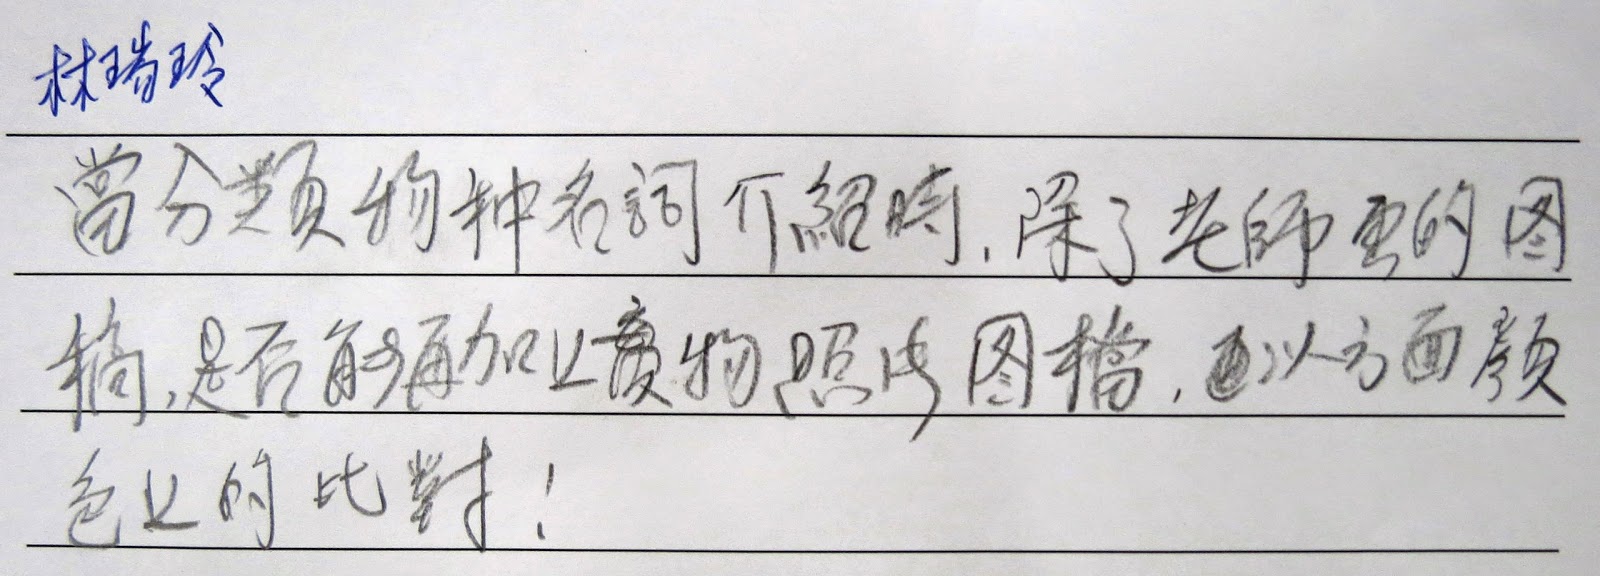 林瑞玲
當分類物种名詞介紹時,除了老師画的图
稿,是否能再加上實物照片图檔,以方面顏
色上的比對!